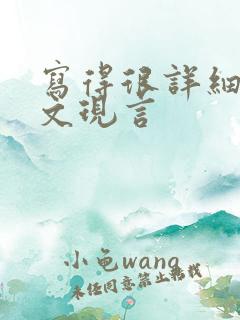 寫得很詳細
文現言
小龟wang
未任同意禁止轉載